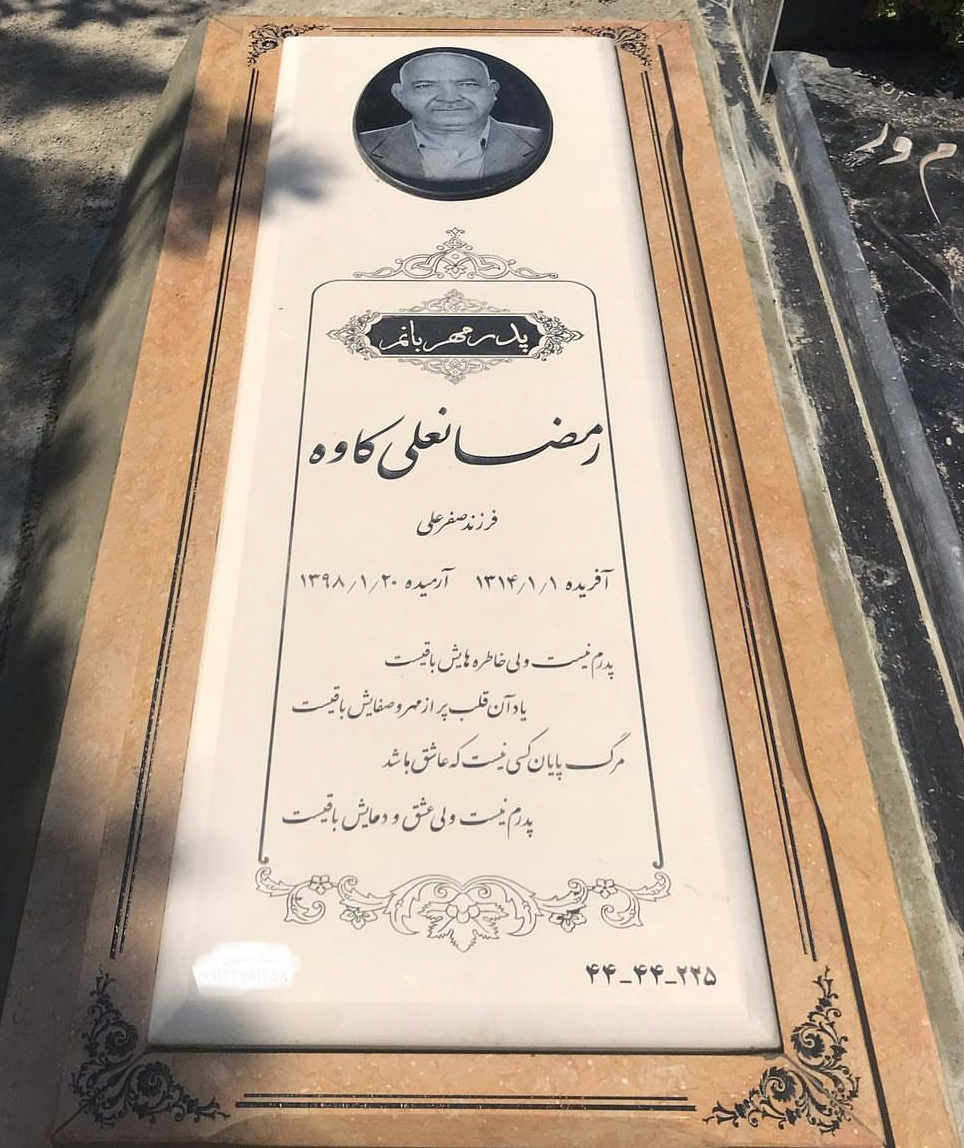 پدر مهربانم
رمضانعلی کاوه
فرزند صفرعلی
آفریده ۱۳۱۴/۱/۱ آرمیده ۱۳۹۸/۱/۲۰
پدرم نیست ولی خاطره هایش باقیست
یاد آن قلب پر از مهر و صفایش باقیست
مرگ پایان کسی نیست که عاشق باشد
پدرم نیست ولی عشق و دعایش باقیست
۴۴_۴۴_۲۲۵